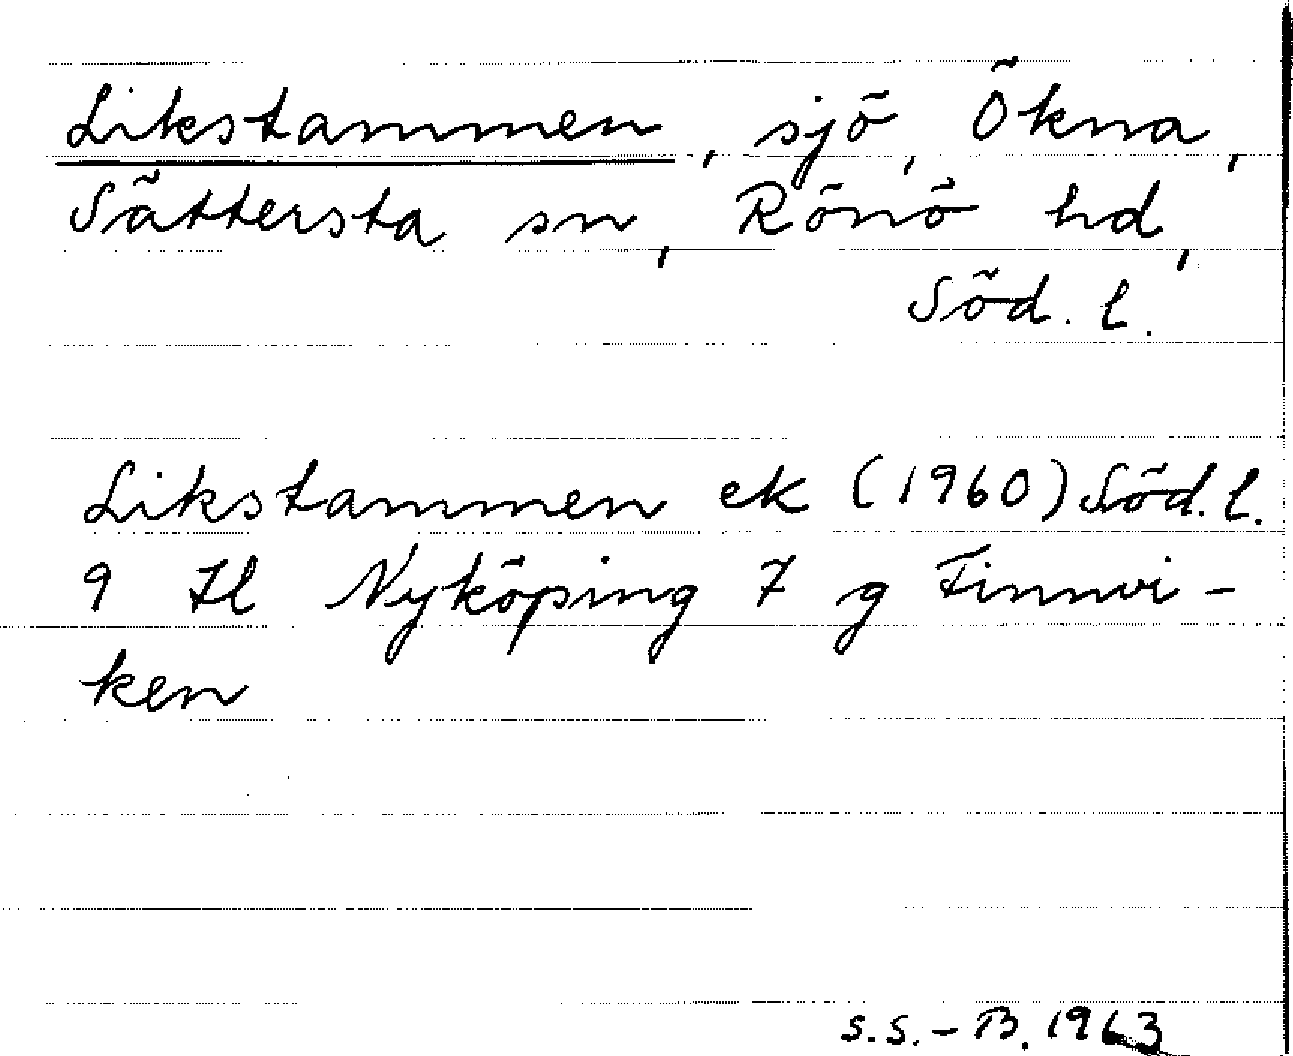 Likstammen, sjö, Ökna,
Sättersta sn, Rönö hd,
Söd. l.
Likstammen ek (1960) Söd. l.
9 Il Nyköping 7 g Finnvi-
ken
S.S. - B. 1963